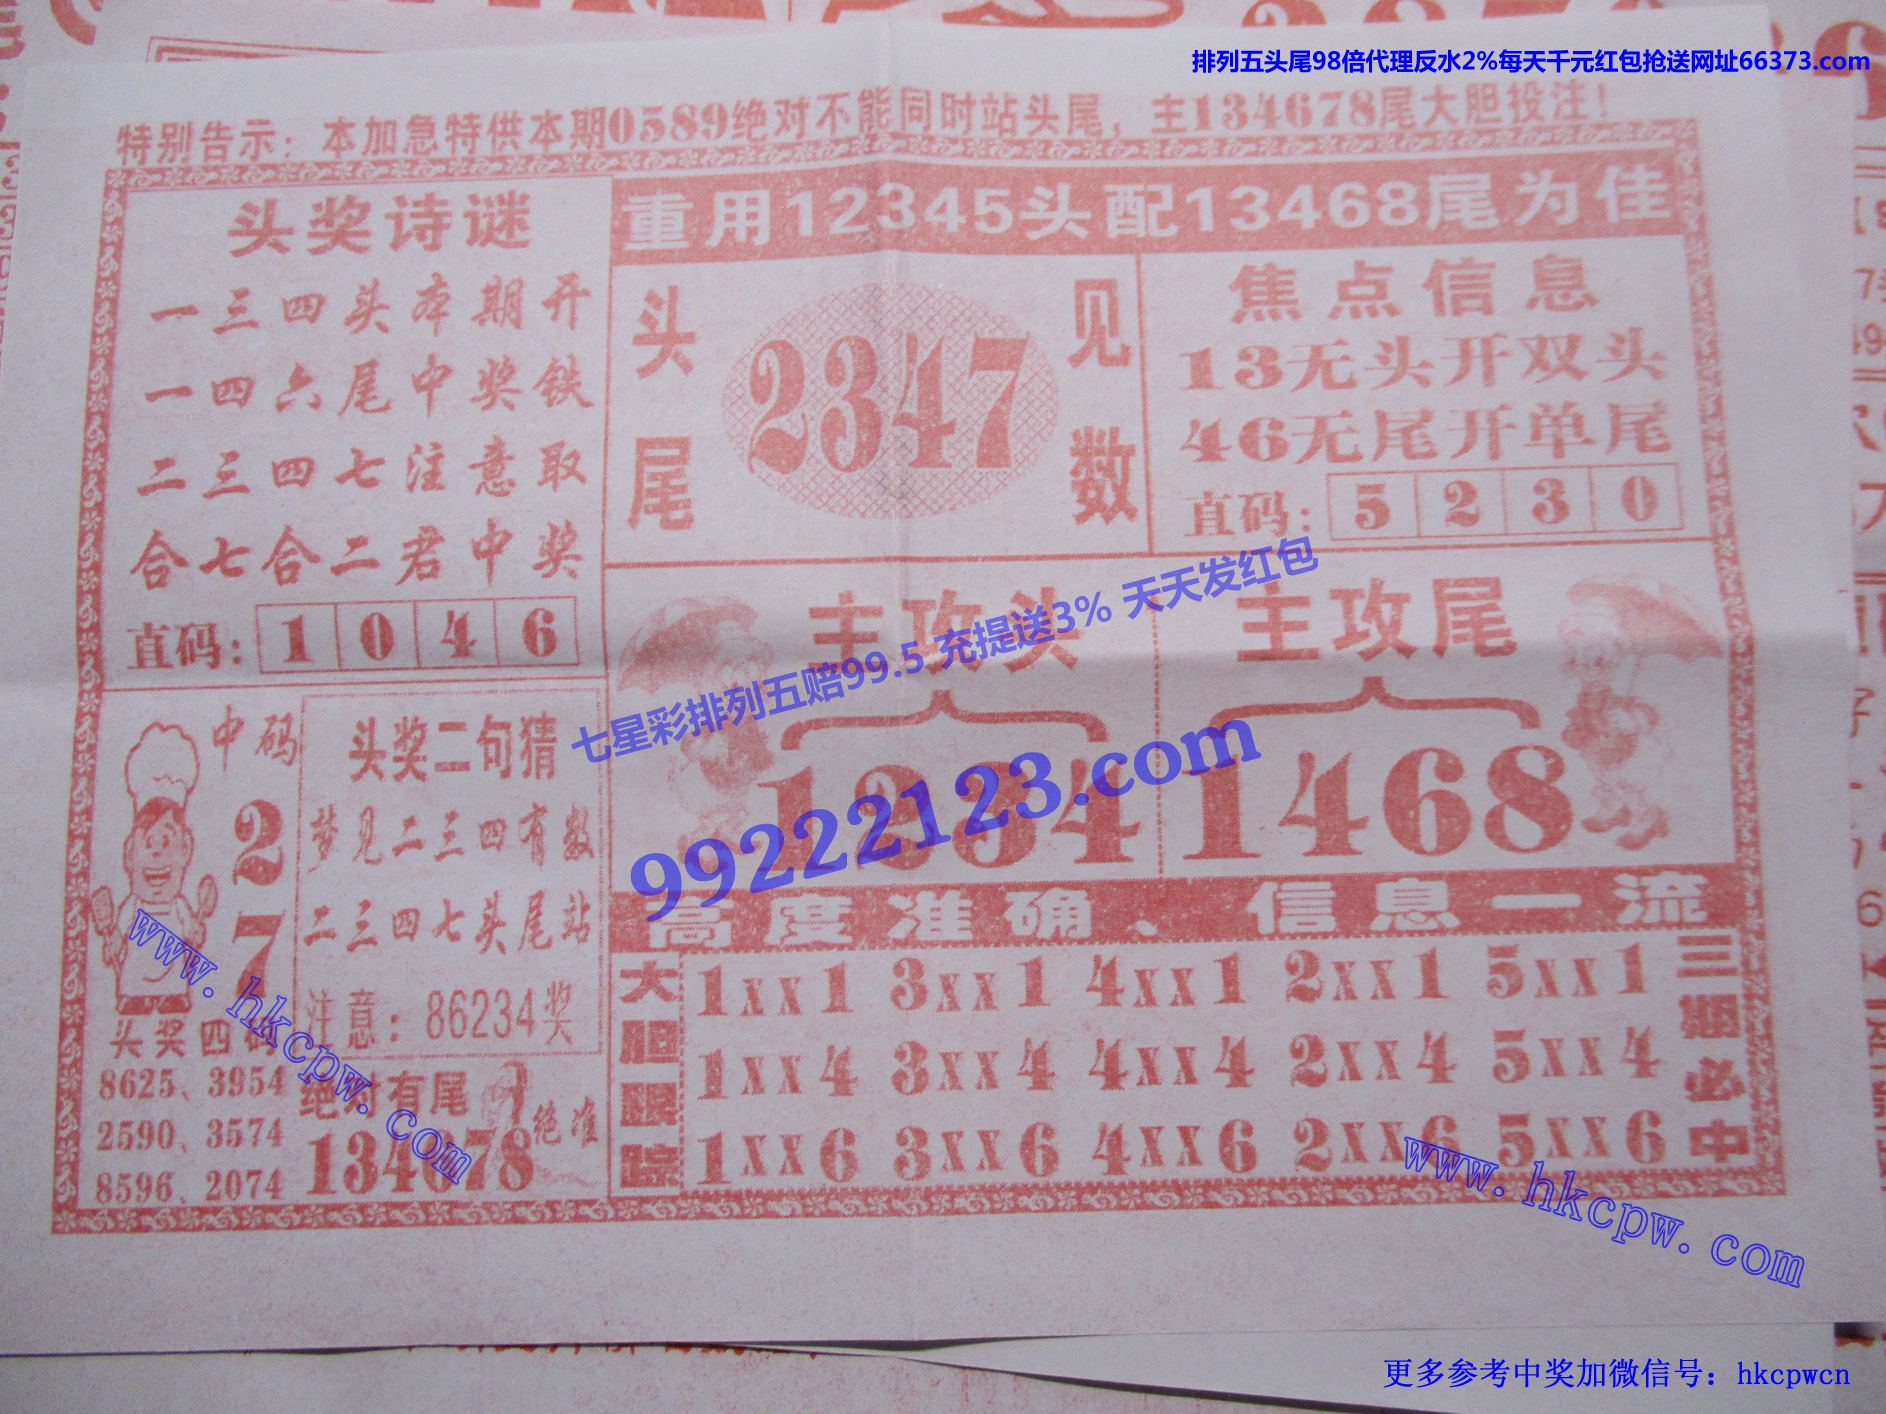 排列五头尾98倍代理反水2%每天千元红包抢送网址66373.com
特别告示：本加急特供本期0589绝对不能同时站头尾，主134678尾大胆投注！
头奖诗谜
一三四头本期开
一四六尾中奖铁
二三四七注意取
合七合二君中奖
直码：1046
重用12345头配13468尾为佳
头尾
2347
见数
焦点信息
13无头开双头
46无尾开单尾
直码：5230
主攻头
1234
主攻尾
1468
七星彩排列五赔99.5 充提送3% 天天发红包
99222123.com
中码
27
头奖四码
8625、3954
2590、3574
8596、2074
头奖二句猜
梦见二三四有数
二三四七头尾站
注意：86234奖
绝对有尾
134678
绝准
高度准确、信息一流
大胆跟踪
1xx1 3xx1 4xx1 2xx1 5xx1
1xx4 3xx4 4xx4 2xx4 5xx4
1xx6 3xx6 4xx6 2xx6 5xx6
三期必中
www.hkcpw.com
www.hkcpw.com
更多参考中奖加微信号：hkcpwcn